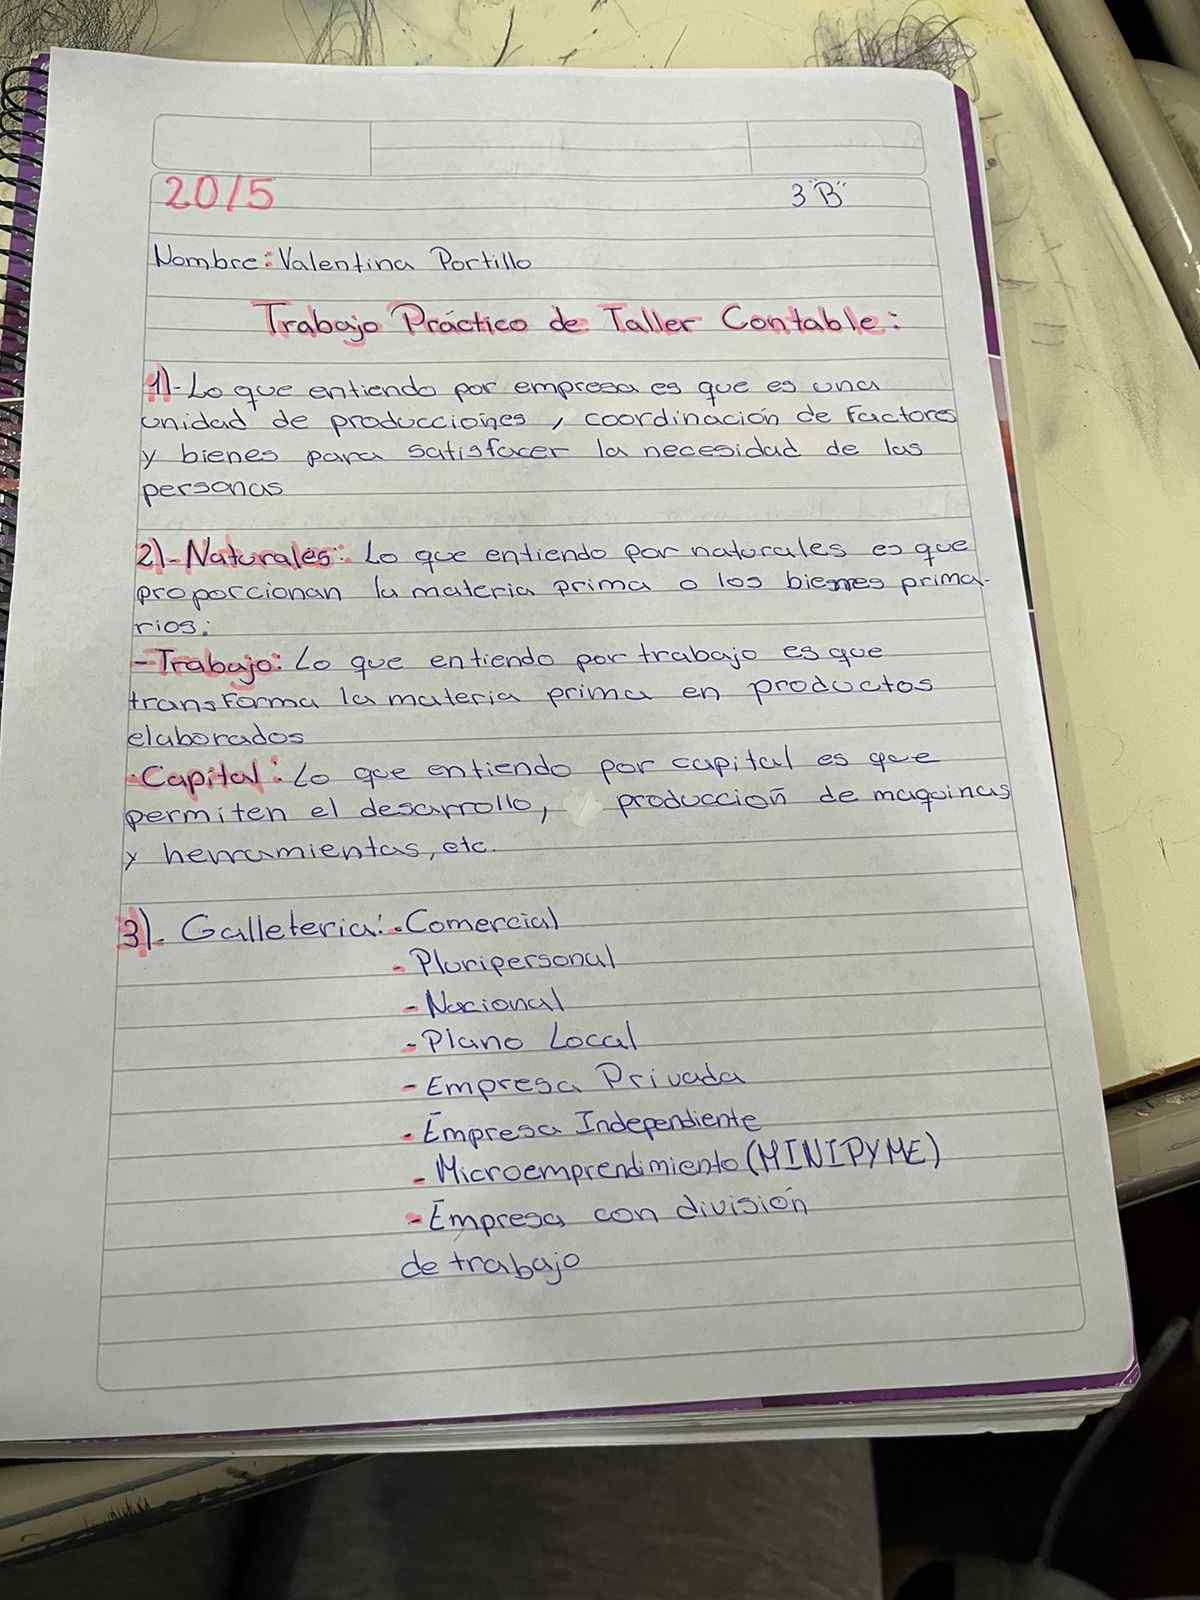 20/5
3"B"
Nombre: Valentina Portillo
Trabajo Práctico de Taller Contable:
1)- Lo que entiendo por empresa es que es una
unidad de producciones, coordinación de factores
y bienes para satisfacer la necesidad de las
personas
2)- Naturales: Lo que entiendo por naturales es que
proporcionan la materia prima o los bienes prima-
rios.
- Trabajo: Lo que entiendo por trabajo es que
transforma la materia prima en productos
elaborados
- Capital: Lo que entiendo por capital es que
permiten el desarrollo, producción de maquinas
y herramientas, etc.
3)- Galleteria: - Comercial
- Pluripersonal
- Nacional
- Plano Local
- Empresa Privada
- Empresa Independiente
- Microemprendimiento (MINIPYME)
- Empresa con división
de trabajo